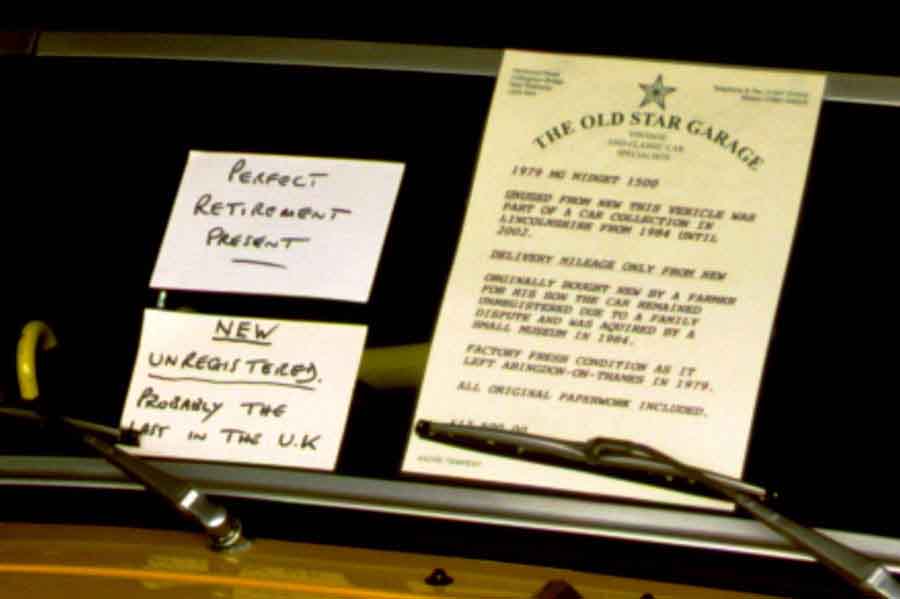 PERFECT
RETIREMENT
PRESENT
NEW
UNREGISTERED.
PROBABLY THE
LAST IN THE U.K
THE OLD STAR GARAGE
VINTAGE
AND CLASSIC CAR
SPECIALISTS
1979 MG MIDGET 1500
UNUSED FROM NEW THIS VEHICLE WAS
PART OF A CAR COLLECTION IN
LINCOLNSHIRE FROM 1984 UNTIL
2002.
DELIVERY MILEAGE ONLY FROM NEW
ORGINALLY BOUGHT NEW BY A FARMER
FOR HIS SON THE CAR REMAINED
UNREGISTERED DUE TO A FAMILY
DISPUTE AND WAS AQUIRED BY A
SMALL MUSEUM IN 1984.
FACTORY FRESH CONDITION AS IT
LEFT ABINGDON-ON-THAMES IN 1979.
ALL ORIGINAL PAPERWORK INCLUDED.